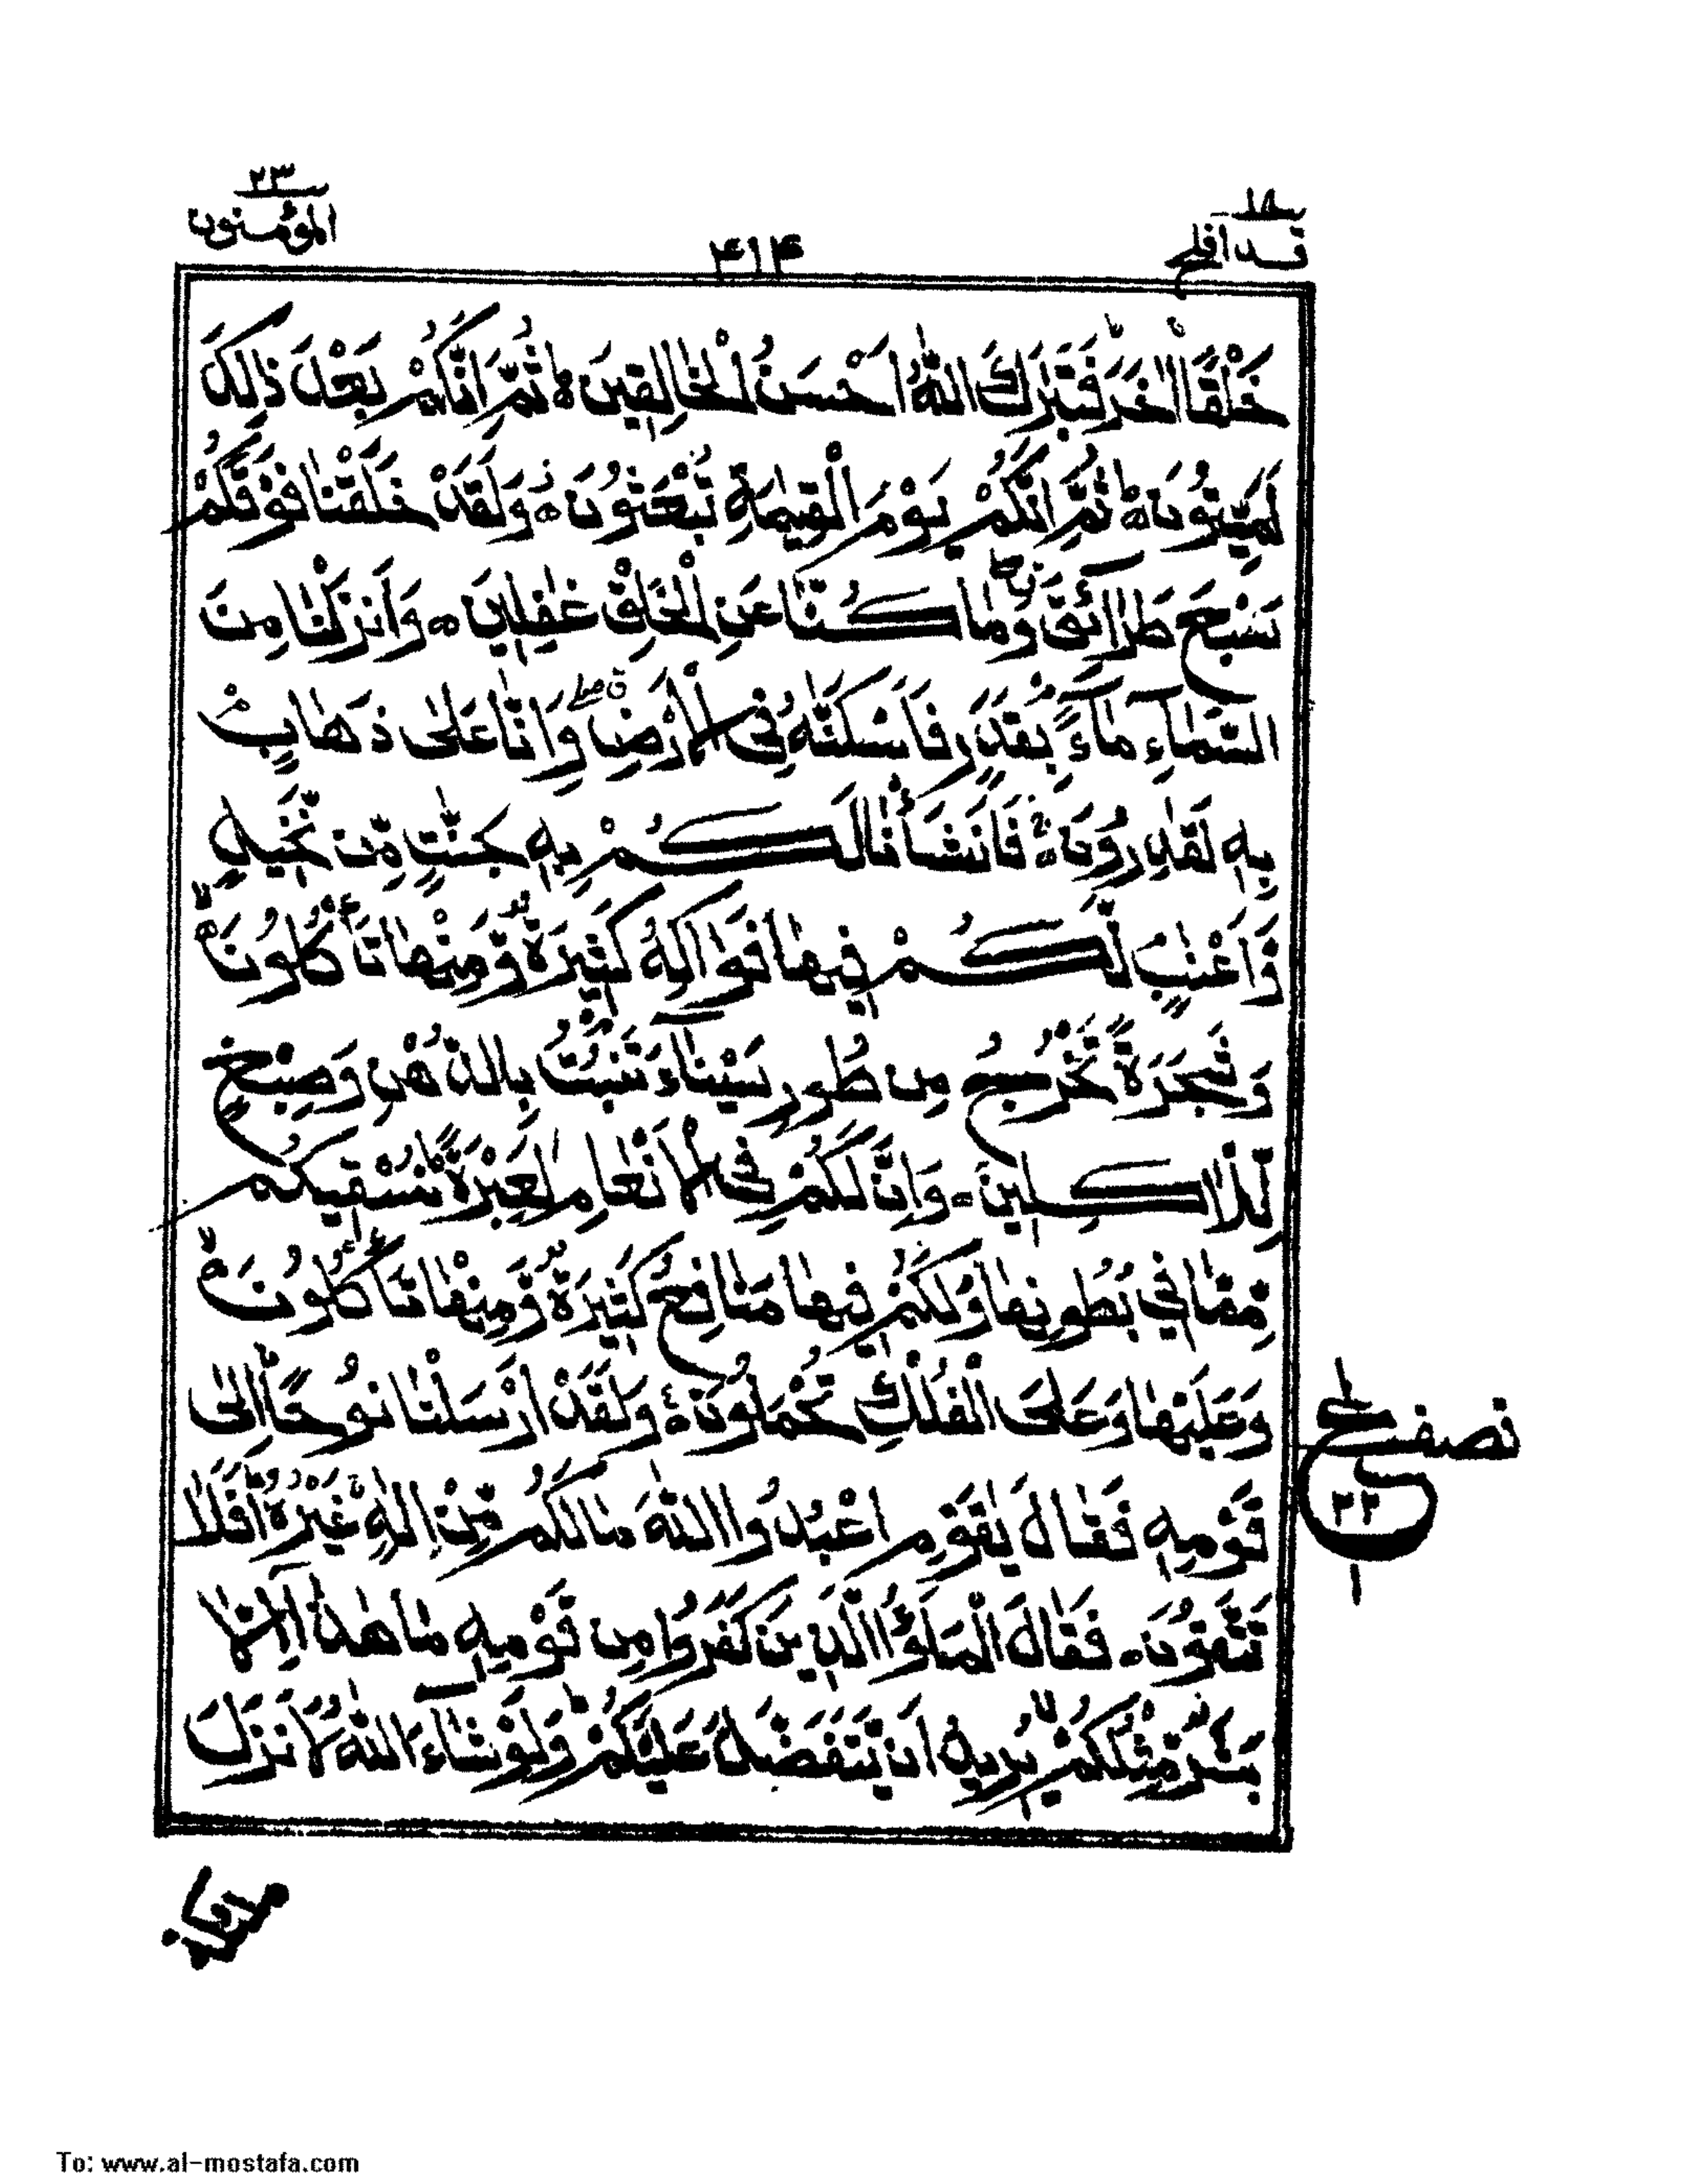 ٢٣
المؤمنون
١٨
قد افلح
۴١۴
خَلْقًا اٰخَرَ ؕ فَتَبٰرَكَ اللّٰهُ اَحْسَنُ الْخٰالِقِيْنَ ؕ ثُمَّ اِنَّكُمْ بَعْدَ ذٰلِكَ
لَمَيِّتُوْنَ ؕ ثُمَّ اِنَّكُمْ يَوْمَ الْقِيٰمَةِ تُبْعَثُوْنَ ۝ وَلَقَدْ خَلَقْنٰا فَوْقَكُمْ
سَبْعَ طَرٰآئِقَ ۖ وَمٰا كُنّٰا عَنِ الْخَلْقِ غٰفِلِيْنَ ۝ وَاَنْزَلْنٰا مِنَ
السَّمٰآءِ مٰآءً ۢ بِقَدَرٍ فَاَسْكَنّٰهُ فِى الْاَرْضِ ۖ وَاِنّٰا عَلٰى ذَهٰابٍ ۢ
بِهٖ لَقٰدِرُوْنَ ۚ فَاَنْشَاْنٰا لَكُمْ بِهٖ جَنّٰتٍ مِّنْ نَّخِيْلٍ
وَّاَعْنٰبٍ لَّكُمْ فِيْهٰا فَوٰاكِهُ كَثِيْرَةٌ وَّمِنْهٰا تَاْكُلُوْنَ ۙ
وَشَجَرَةً تَخْرُجُ مِنْ طُوْرِ سَيْنٰآءَ تَنْۢبُتُ بِالدُّهْنِ وَصِبْغٍ
لِّلْاٰكِلِيْنَ ۝ وَاِنَّ لَكُمْ فِى الْاَنْعٰامِ لَعِبْرَةً ؕ نُسْقِيْكُمْ
مِّمّٰا فِيْ بُطُوْنِهٰا وَلَكُمْ فِيْهٰا مَنٰافِعُ كَثِيْرَةٌ وَّمِنْهٰا تَاْكُلُوْنَ ۙ
وَعَلَيْهٰا وَعَلَى الْفُلْكِ تُحْمَلُوْنَ ۠ وَلَقَدْ اَرْسَلْنٰا نُوْحًا اِلٰى
قَوْمِهٖ فَقٰالَ يٰقَوْمِ اعْبُدُوا اللّٰهَ مٰا لَكُمْ مِّنْ اِلٰهٍ غَيْرُهٗ ؕ اَفَلٰا
تَتَّقُوْنَ ۝ فَقٰالَ الْمَلَؤُا الَّذِيْنَ كَفَرُوْا مِنْ قَوْمِهٖ مٰا هٰذٰآ اِلّٰا
بَشَرٌ مِّثْلُكُمْ ۙ يُرِيْدُ اَنْ يَّتَفَضَّلَ عَلَيْكُمْ ؕ وَلَوْ شٰآءَ اللّٰهُ لَاَنْزَلَ
نصف
ع
٢٢
١
To: www.al-mostafa.com